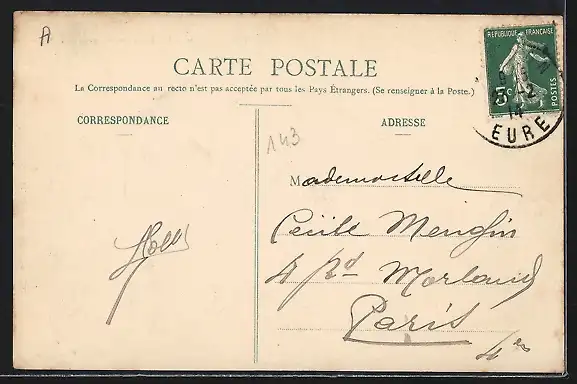 A
CARTE POSTALE
La Correspondance au recto n'est pas acceptée par tous les Pays Étrangers. (Se renseigner à la Poste.)
CORRESPONDANCE
143
ADRESSE
RÉPUBLIQUE FRANÇAISE
5c
POSTES
14
EURE
Mademoiselle
Cécile Mengin
4 Bd Morland
Paris
4e